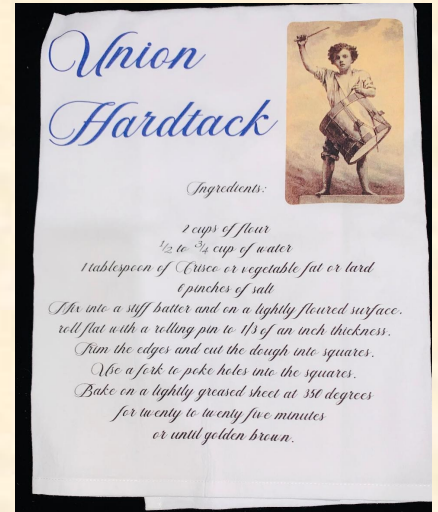 Union
Hardtack
Ingredients:
2 cups of flour
1/2 to 3/4 cup of water
1 tablespoon of Crisco or vegetable fat or lard
6 pinches of salt
Mix into a stiff batter and on a lightly floured surface.
roll flat with a rolling pin to 1/3 of an inch thickness.
Trim the edges and cut the dough into squares.
Use a fork to poke holes into the squares.
Bake on a lightly greased sheet at 350 degrees
for twenty to twenty five minutes
or until golden brown.